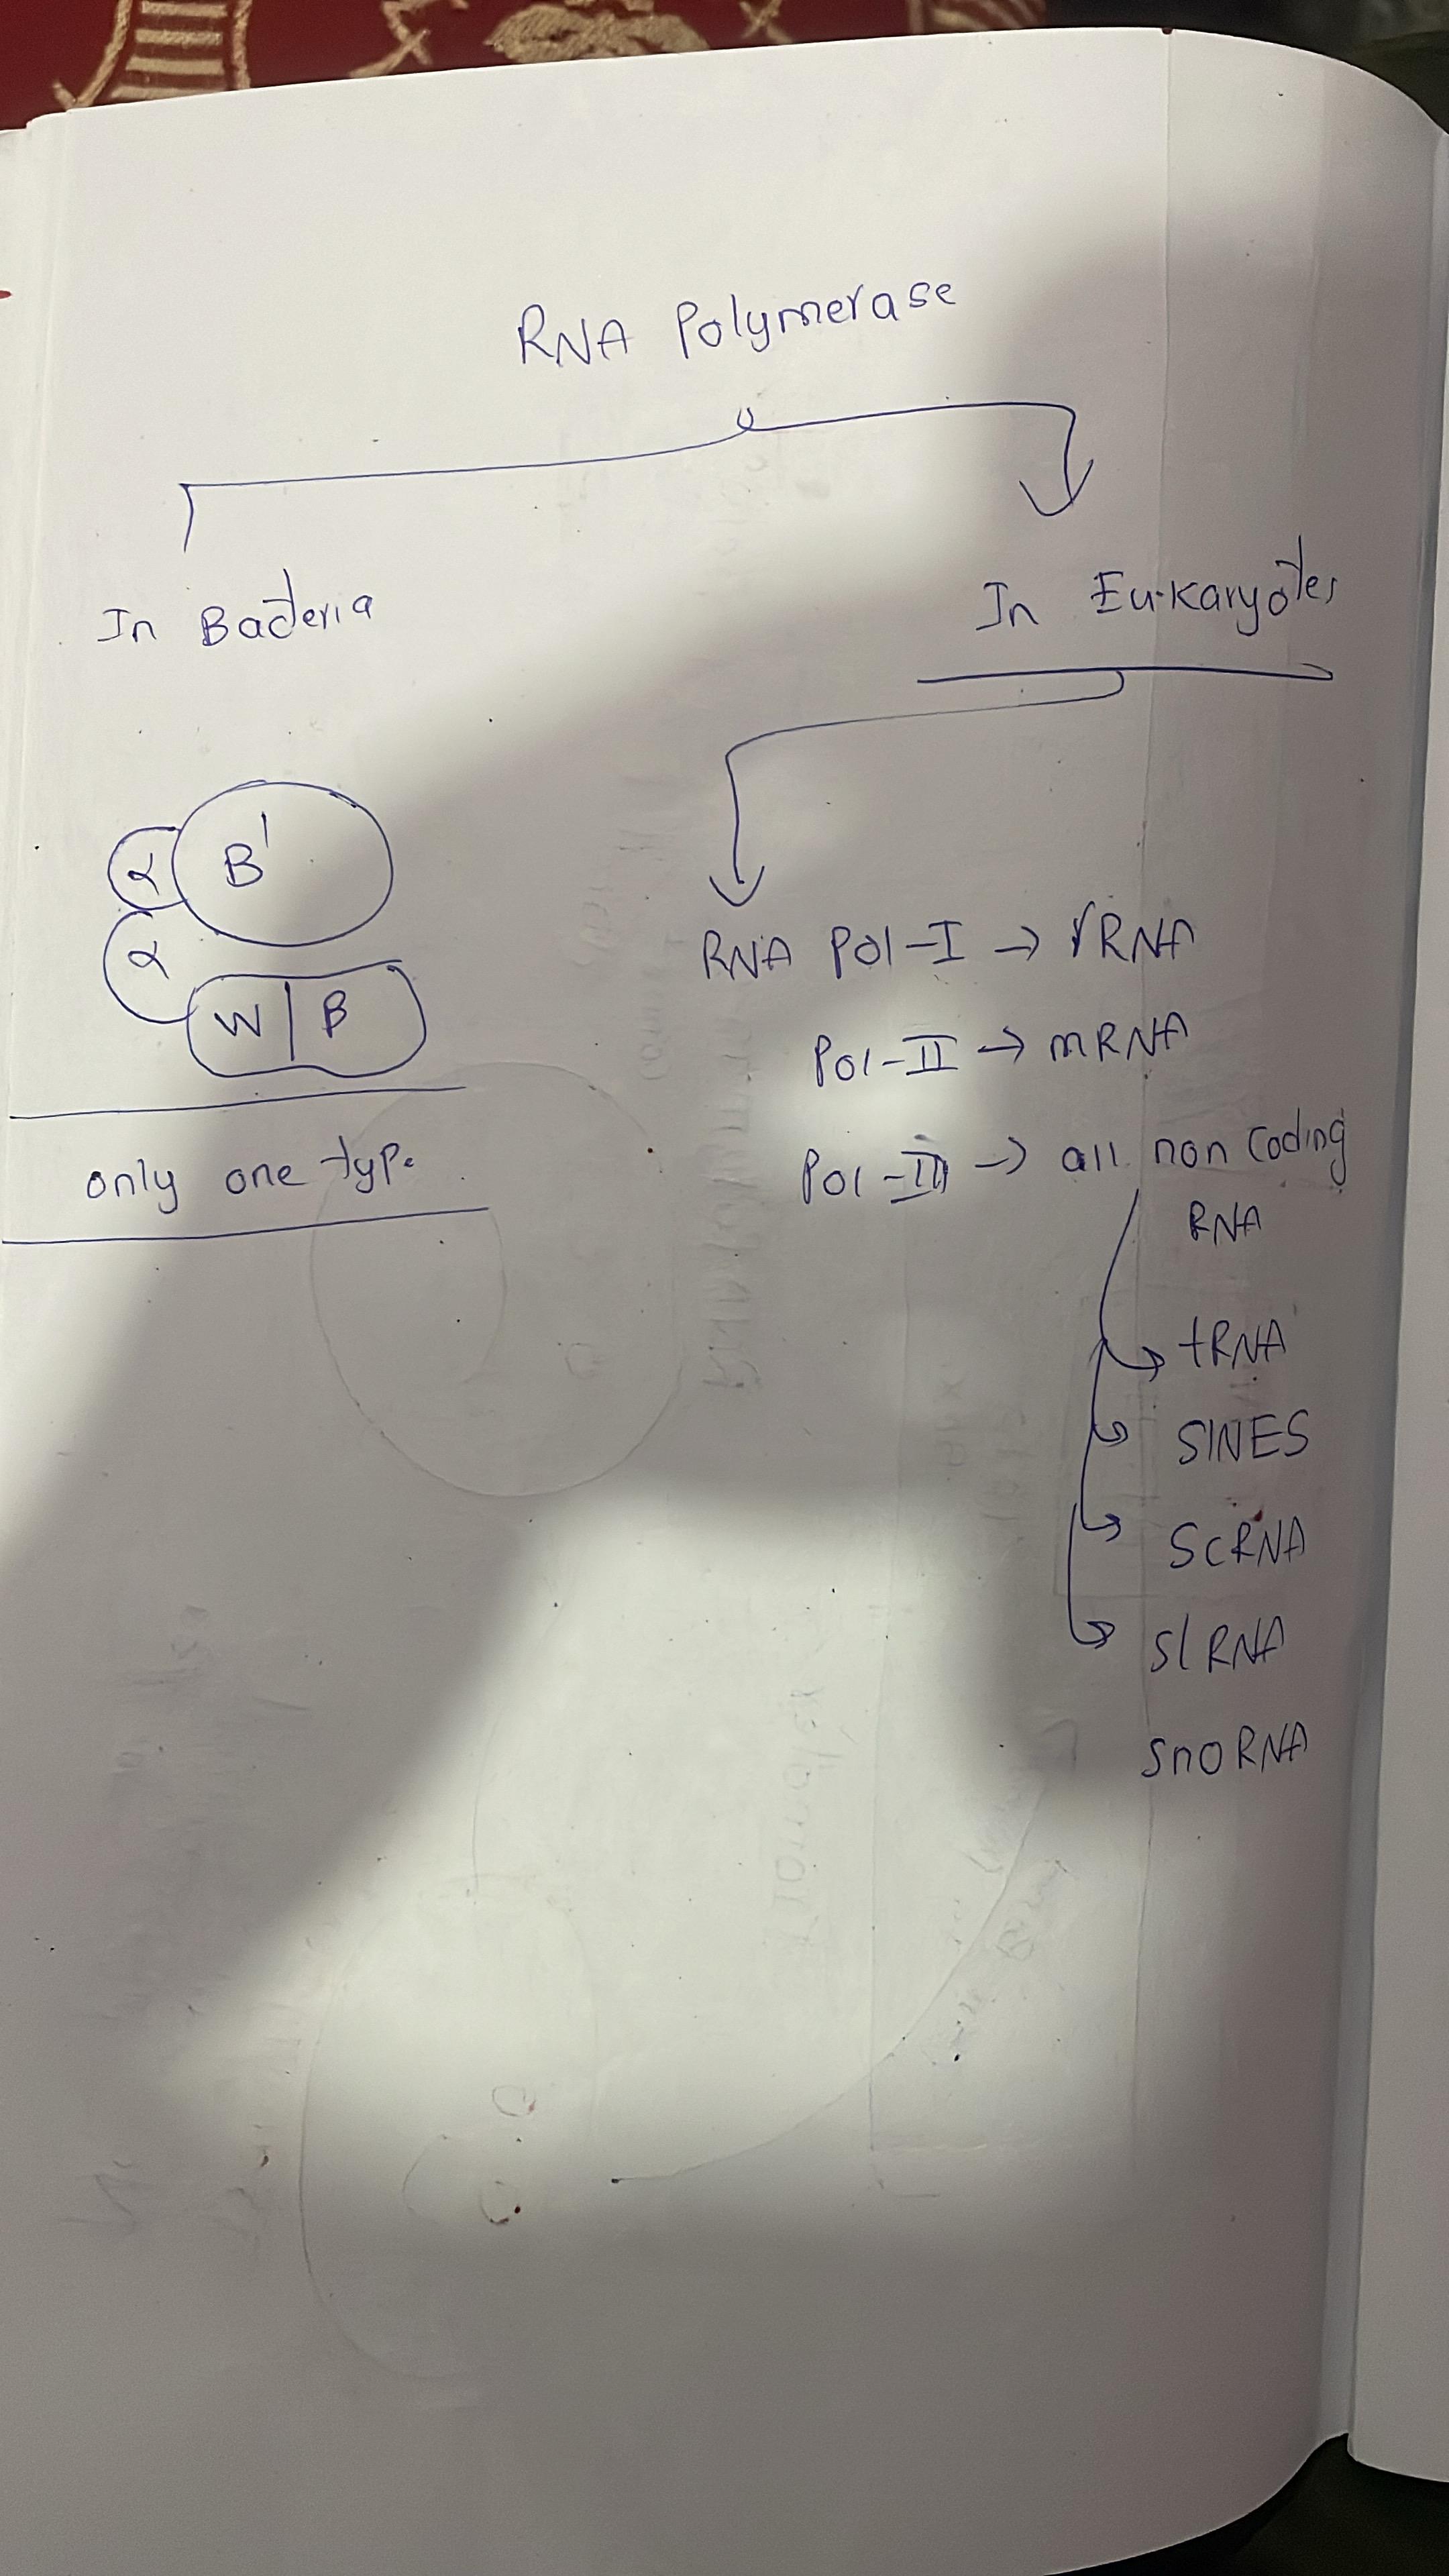 RNA Polymerase
In Bacteria
In Eukaryotes
α B'
α
W | B
only one type
RNA Pol-I → rRNA
Pol-II → mRNA
Pol-III → all non coding
RNA
tRNA
SINES
ScRNA
slRNA
snoRNA